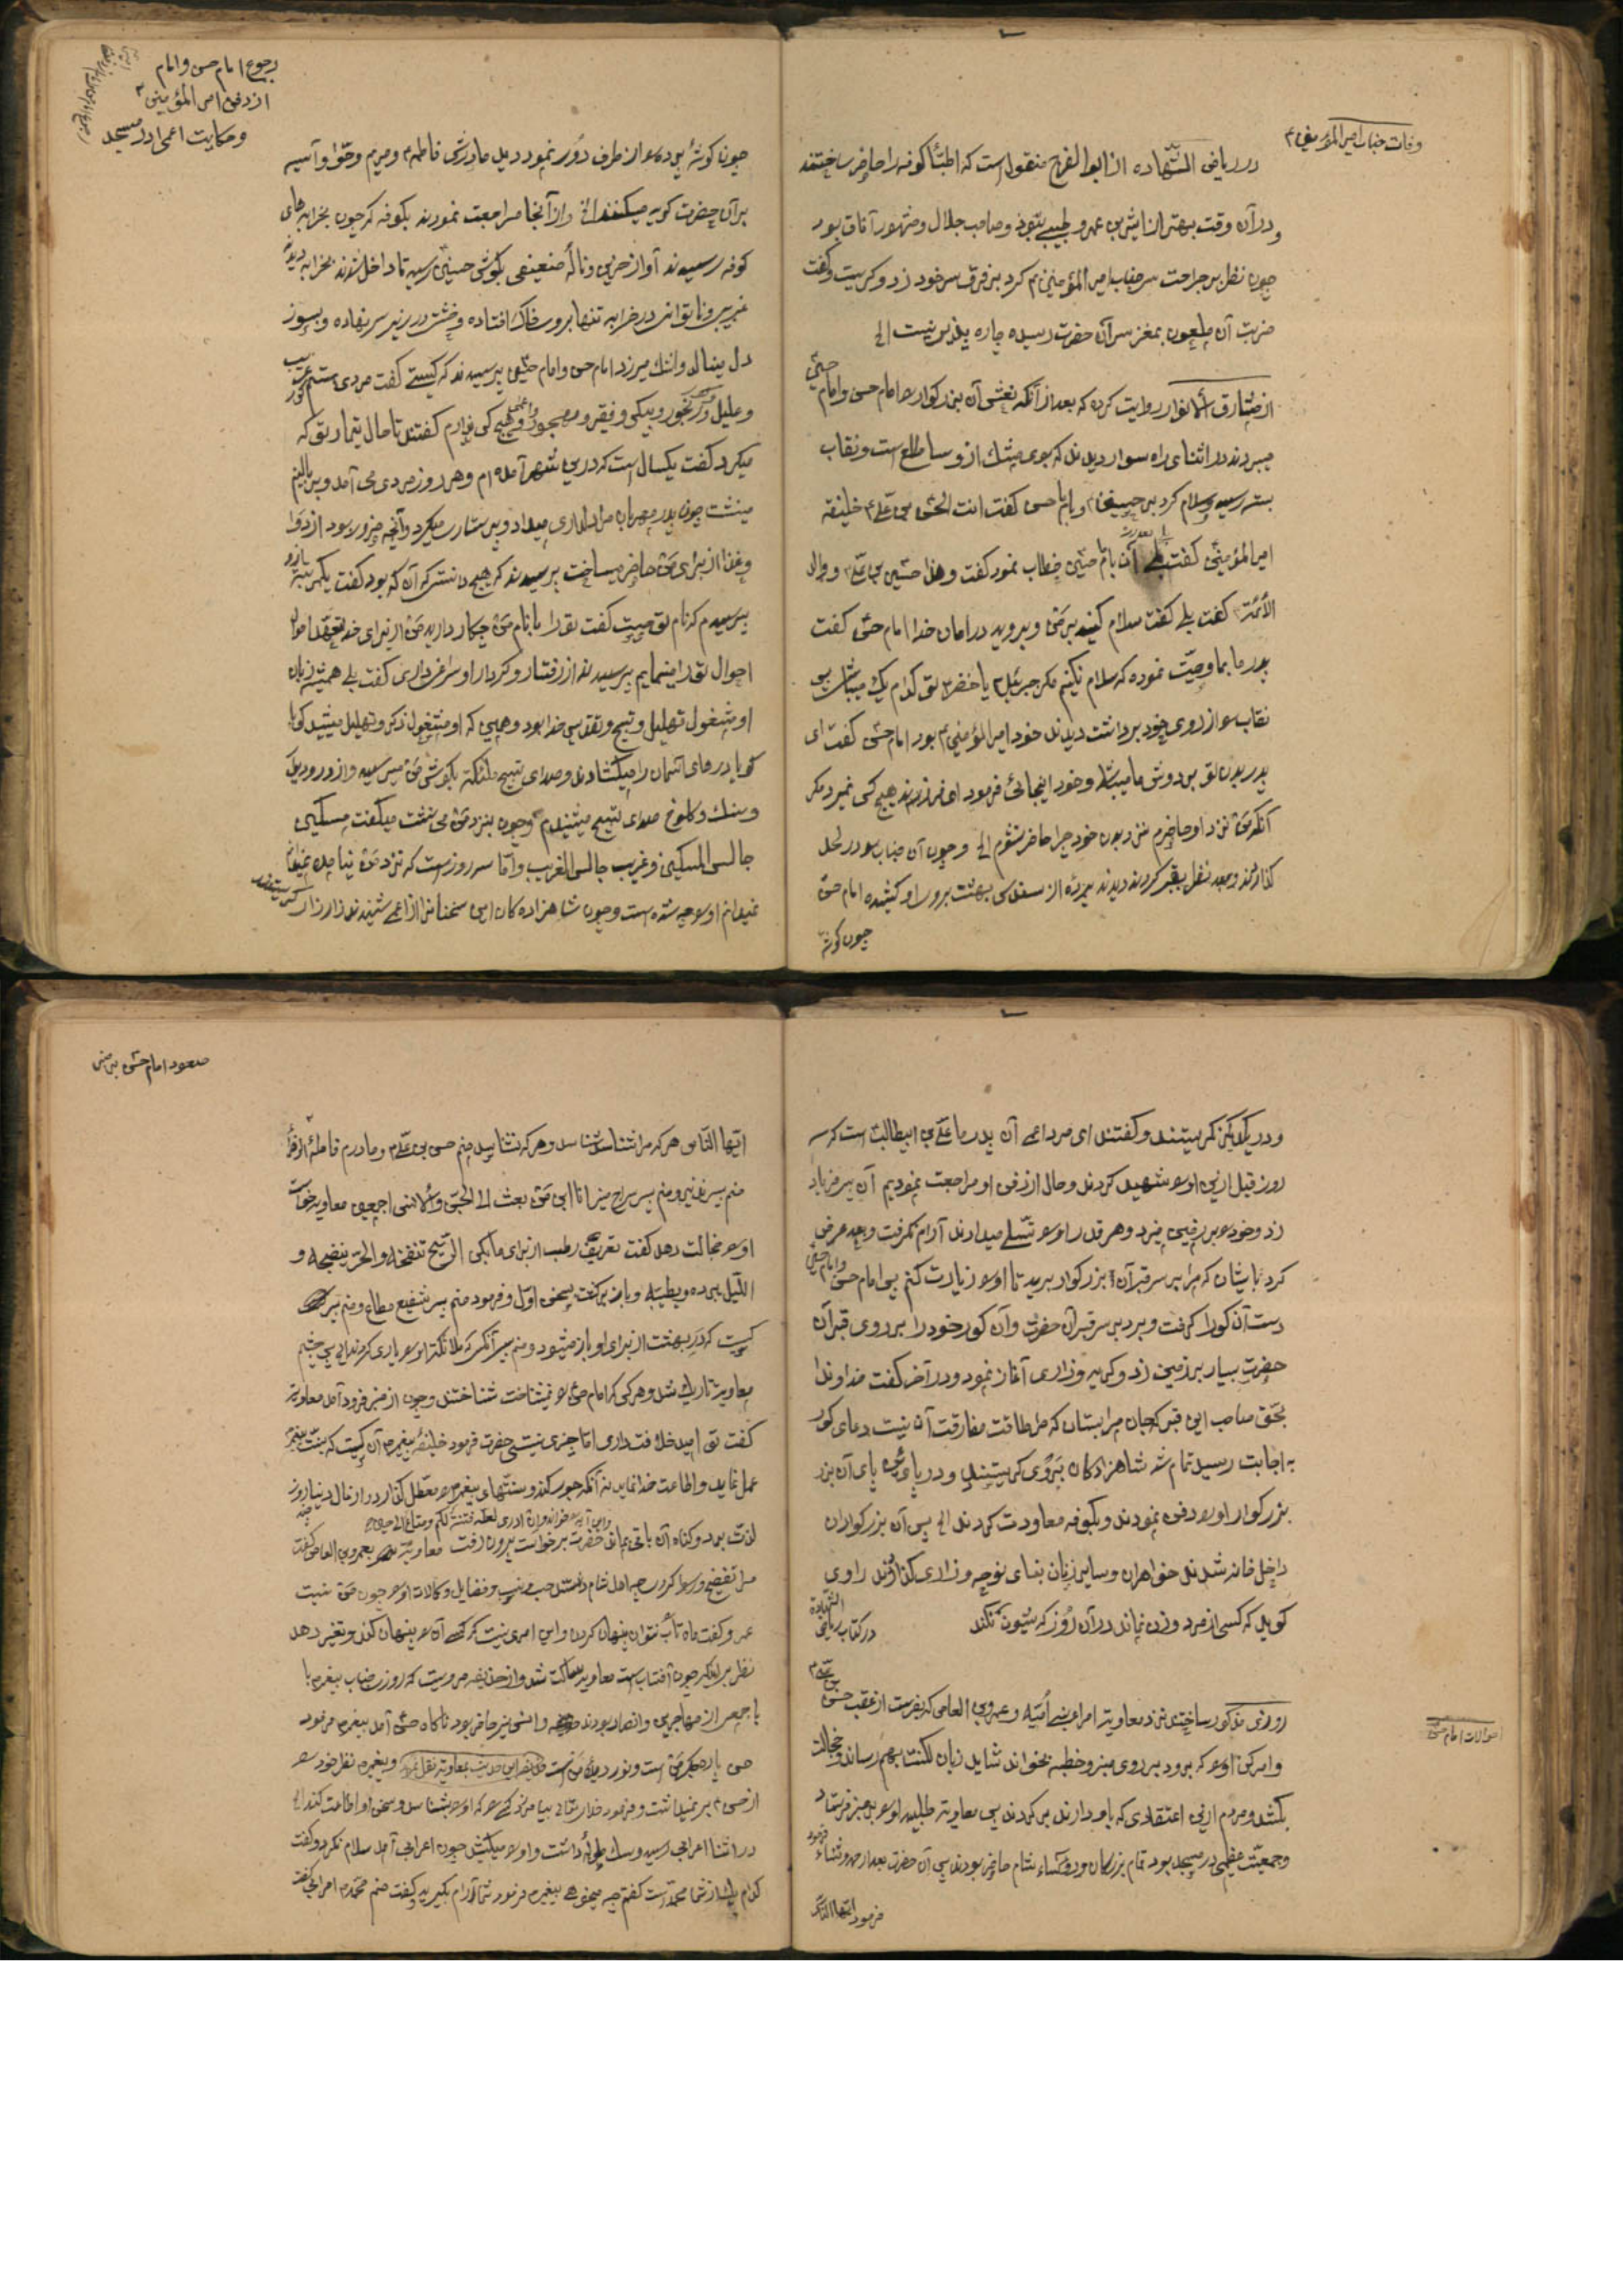 وفات جناب امیر المؤمنین م
در ریاض الشهاده از ابو الفرج منقول است که اطبّاء کوفه را حاضر ساختند
و در آن وقت بهتر از اثیر بن عمرو طبیبی نبود و صاحب جلال و مشهور آفاق بود
چون نظر بر جراحت سر جناب امیر المؤمنین م کرد بر فرق سر خود زد و گریست و گفت
ضربت آن ملعون بمغز سر آن حضرت رسیده چاره پذیر نیست الخ
از مشارق الانوار روایت کرده که بعد از آنکه نعش آن بزرگوار را امام حسن و امام حسین
میبردند در اثنای راه سوار دیدند که بوی مشک از او ساطع است و نقاب
بسته رسید و سلام کرد بر حسنین م و بامام حسن گفت انت الحسن بن علی م خلیفه
امیر المؤمنین گفت بلی بامام حسین خطاب نمود گفت و هذا حسین بن علی م و والد
الائمّة گفت بلی گفت سلام کنید بر من و بروید در امان خدا امام حسن گفت
پدر ما بما وصیّت نموده که سلام نکنیم مگر جبرئیل م یا خضر م تو کدام یک میباشی پس
نقاب را از روی خود برداشت دیدند خود امیر المؤمنین م بود امام حسن گفت ای
پدر بدن تو بر دوش ما میباشد و خود اینجائی فرمود ای فرزند هیچ کس نمیرد مگر
آنکه من نزد او حاضرم نزد بدن خود چرا حاضر نشوم الخ و چون آن جناب را در لحد
گذاردند و بعد نظر بقبر کردند دیدند پرده از سندس بهشت بر روی او کشیده امام حسن
چون گوشه
رجوع امام حسن و امام
از دفن امیر المؤمنین م
و حکایت اعمی در مسجد
چون گوشهٔ پرده را از طرف دور نمود دید مادرش فاطمه م و مریم و حوّا و آسیه
بر آن حضرت گریه میکنند الخ و از آنجا مراجعت نمودند بکوفه که چون بخرابه های
کوفه رسیدند آواز حزین و نالهٔ ضعیفی بگوش حسنین رسید تا داخل شدند بخرابه دیدند
غریب و ناتوانی در خرابه تنها بر روی خاک افتاده و خشت در زیر سر نهاده و بسوز
دل مینالد و اشک میریزد امام حسن و امام حسین پرسیدند که کیستی گفت مردی ستم غریب کور
و علیل و رنجور و بیکس و فقیر و مهجور و هیچ کس ندارم گفتند تا حال تیمار تو که
میکرد گفت یکسال است که در این شهر آمده ام و هر روز مردی می آمد و بر بالینم
مینشست چون پدر مهربان مرا دلداری میداد و پرستاری میکرد و آنچه ضرور بود از دوا
و غذا از برای من حاضر میساخت پرسیدند که هیچ دانستی که آن که بود گفت یکمرتبه از او
پرسیدم که نام تو چیست گفت تو را با نام من چکار دارید من از برای خدا تفقد احوال
احوال تو را مینمایم پرسیدند از رفتار و کردار او سراغی داری گفت بلی همیشه زبان
او مشغول تهلیل و تسبیح و تقدیس خدا بود و همین که او مشغول ذکر و تهلیل میشد گویا
گویا درهای آسمان را میگشادند و صدای تسبیح ملئکه بگوش من میرسید و از در و دیوار
و سنک و کلوخ صدای تسبیح میشنیدم و چون بنزد من می نشست میگفت مسکین
جالس المسکین و غریب جالس الغریب و امّا سه روز است که نزد من نیامده نمیدانم
نمیدانم او را چه شده است و چون شاهزاده کان این سخنان از اعمی شنیدند زار زار گریستند
و در یکدیگر نگریستند و گفتند ای مرد اعمی آن پدر ما علی بن ابیطالب است که سه
روز قبل از این او را شهید کردند و حال از دفن او مراجعت نمودیم آن پیر فریاد
زد و خود را بر زمین میزد و هر قدر او را تسلّی میدادند آرام نگرفت و بعد عرض
کرد بایشان که مرا بر سر قبر آن بزرگوار ببرید تا او را زیارت کنم پس امام حسن و امام حسین
دست آن کور را گرفت و برد بر سر قبر آن حضرت و آن کور خود را بر روی قبر آن
حضرت بسیار بر زمین زد و گریه و زاری آغاز نمود و در آخر گفت خداوندا
بحق صاحب این قبر که جان مرا بستان که مرا طاقت مفارقت آن نیست دعای کور
به اجابت رسید تمام شد شاهزادکان بر وی گریستند و در پای آن بزر
بزرگوار او را دفن نمودند و بکوفه معاودت کردند الخ پس آن بزرگواران
داخل خانه شدند خواهران و سایر زنان بنای نوحه و زاری گذاردند راوی
گوید که کسی از مرد و زن نماند در آن روز که شیون نکند
در کتاب ریاض الشهادة
روزی مذکور ساختند نزد معاویه امراء بنی امیّه و عمرو بن العاص که بفرست از عقب حسن بن علی م
و امر کن او را که برود بر روی منبر و خطبه بخواند شاید زبان لکنت بهم رساند و خجالت
بکشد و مردم از این اعتقادی که باو دارند بر گردند پس معاویه طلبید او را بر منبر فرستاد
و جمعیّت عظیمی در مسجد بود تمام بزرگان و رؤساء شام حاضر بودند پس آن حضرت بعد از حمد و ثناء فرمود
فرمود ایّها النّاس
احوالات امام حسن
صعود امام حسن بر منبر
ایّها النّاس هر که مرا شناسد شناسد و هر که نشناسد منم حسن بن علی م و مادرم فاطمهٔ زهرا
منم پسر نذیر و منم پسر سراج منیر انا ابن من بعث الی الجنّ و الانس اجمعین معاویه خواست
او را خجالت دهد گفت تعریف رطب از برای ما بکن الرّیح تنفخه و الحرّ ینضجه و
اللّیل یبرده و یطیّبه و باز برگشت بسخن اوّل و فرمود منم پسر شفیع مطاع و منم پسر
کیست که در بهشت از برای او باز میشود و منم پسر آنکس که ملائکه او را یاری کردند پس چشم
معاویه تاریک شد و هر کس که امام حسن را نمیشناخت شناختند و چون از منبر فرود آمد معاویه
گفت تو امید خلافت داری امّا چیزی نیستی حضرت فرمود خلیفهٔ پیغمبر آن کیست که بسنّت پیغمبر
عمل نماید و اطاعت خدا نماید نه آنکه جور کند و سنّتهای پیغمبر را معطّل گذارد و از مال دنیا روز
و این آیه را خواند و ان ادری لعلّه فتنة لکم و متاع الی حین
لذّت ببرد و گناه آن باقی بماند حضرت برخواست بیرون رفت معاویه بعمرو بن العاص گفت
مرا تفضیح و رسوا کردی اهل شام دانستند حسب و نسب و فضایل و کمالات او را چون من نیست
عمرو گفت ماه تاب نتوان پنهان کردن و این امری نیست که کسی آن را پنهان کند و تغییر دهد
نظر مرا چون آفتاب است معاویه ساکت شد و از حذیفه مرویست که روزی جناب پیغمبر با
با جمعی از مهاجرین و انصار بودند و انس نیز حاضر بود ناگاه حسن آمد پیغمبر فرمود
حسن پاره جگر من است و نور دیدهٔ من است و پیغمبر نظر خود را
از حسن م بر نمیداشت و فرمود
در اثنا اعرابی رسید و چون اعرابی آمد سلام نکرد و گفت
کدام یک از شما محمّد است گفتند چه میخواهی پیغمبر م فرمود شما آرام بگیرید گفت منم محمّد م اعرابی گفت